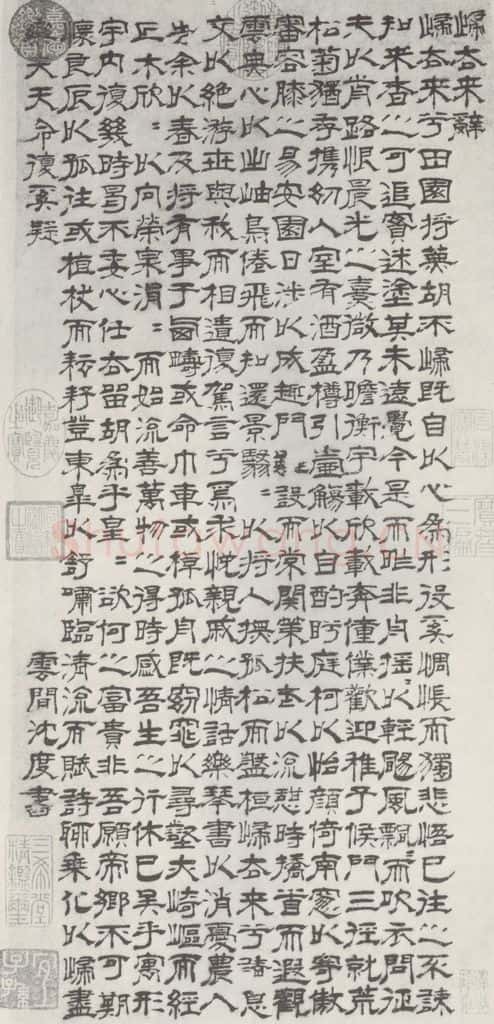 歸去來辭
歸去來兮田園將蕪胡不歸既自以心為形役奚惆悵而獨悲悟已往之不諫
知來者之可追寔迷塗其未遠覺今是而昨非舟搖以輕颺風飄而吹衣問征
夫以前路恨晨光之熹微乃瞻衡宇載欣載奔僮僕歡迎稚子候門三徑就荒
松菊猶存攜幼入室有酒盈樽引壺觴以自酌眄庭柯以怡顏倚南窗以寄傲
審容膝之易安園日涉以成趣門雖設而常關策扶老以流憩時矯首而遐觀
雲無心以出岫鳥倦飛而知還景翳〻以將入撫孤松而盤桓歸去來兮請息
交以絕游世與我而相遺復駕言兮焉求悅親戚之情話樂琴書以消憂農人
告余以春及將有事于西疇或命巾車或棹孤舟既窈窕以尋壑亦崎嶇而經
丘木欣〻以向榮泉涓〻而始流善萬物之得時感吾生之行休已矣乎寓形
宇內復幾時曷不委心任去留胡為乎皇〻欲何之富貴非吾願帝鄉不可期
懷良辰以孤往或植杖而耘耔登東皋以舒嘯臨清流而賦詩聊乘化以歸盡
樂夫天命復奚疑
雲間沈度書
嘉慶御覽之寶
三希堂精鑑璽
宜子孫
Shufawang.cn